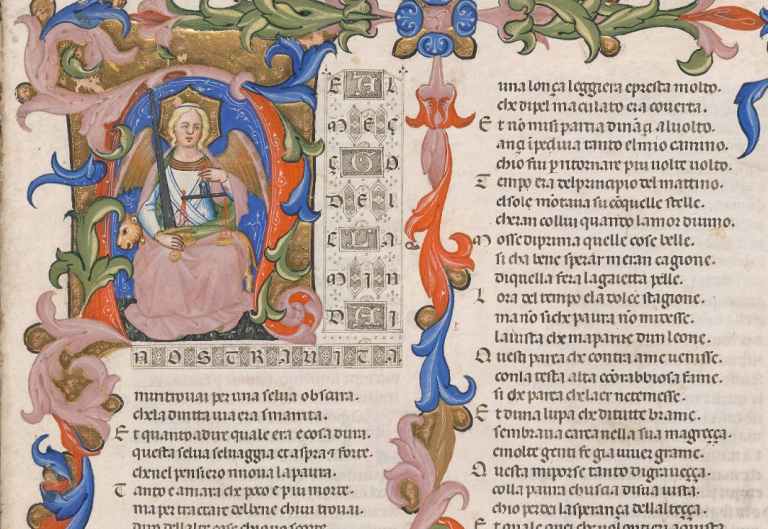 N
EL
MEÇ
ÇO
DEL
CAMIN
DI
NOSTRA VITA.
mi ritrovai per una selva obscura.
che la diritta via era smarrita.
Et quanto a dire quale era e cosa dura.
questa selva selvaggia et aspra e forte.
che nel pensiero rinova la paura.
Tanto e amara che poco e piu morte.
ma per tractare del bene chivi trovai.
diro dellaltre cose
una lonça leggiera e presta molto.
che di pel maculato era coverta.
Et no mi si partia dinaçi al volto.
ançi ipediva tanto el mio camino.
chio fui p ritornare piu volte volto.
Tempo era del principio del mattino.
el sole motava su co quelle stelle.
cheran collui quando lamor divino.
Mosse di prima quelle cose belle.
si cha bene sperar meran cagione.
di quella fera la gaietta pelle.
Lora del tempo e la dolce stagione.
ma no si che paura no mi desse.
la vista che maparve dun leone.
Questi parea che contra a me venisse.
con la testa alta e co rabbiosa fame.
si che parea che laer ne temesse.
Et duna lupa che di tutte brame.
sembrava carca nella sua magreçça.
e molte genti fe gia viver grame.
Questa mi porse tanto di graveçça.
colla paura chuscia di sua vista.
chio perdei la sperança dellalteçça.
Et quale quei che volontieri aquista